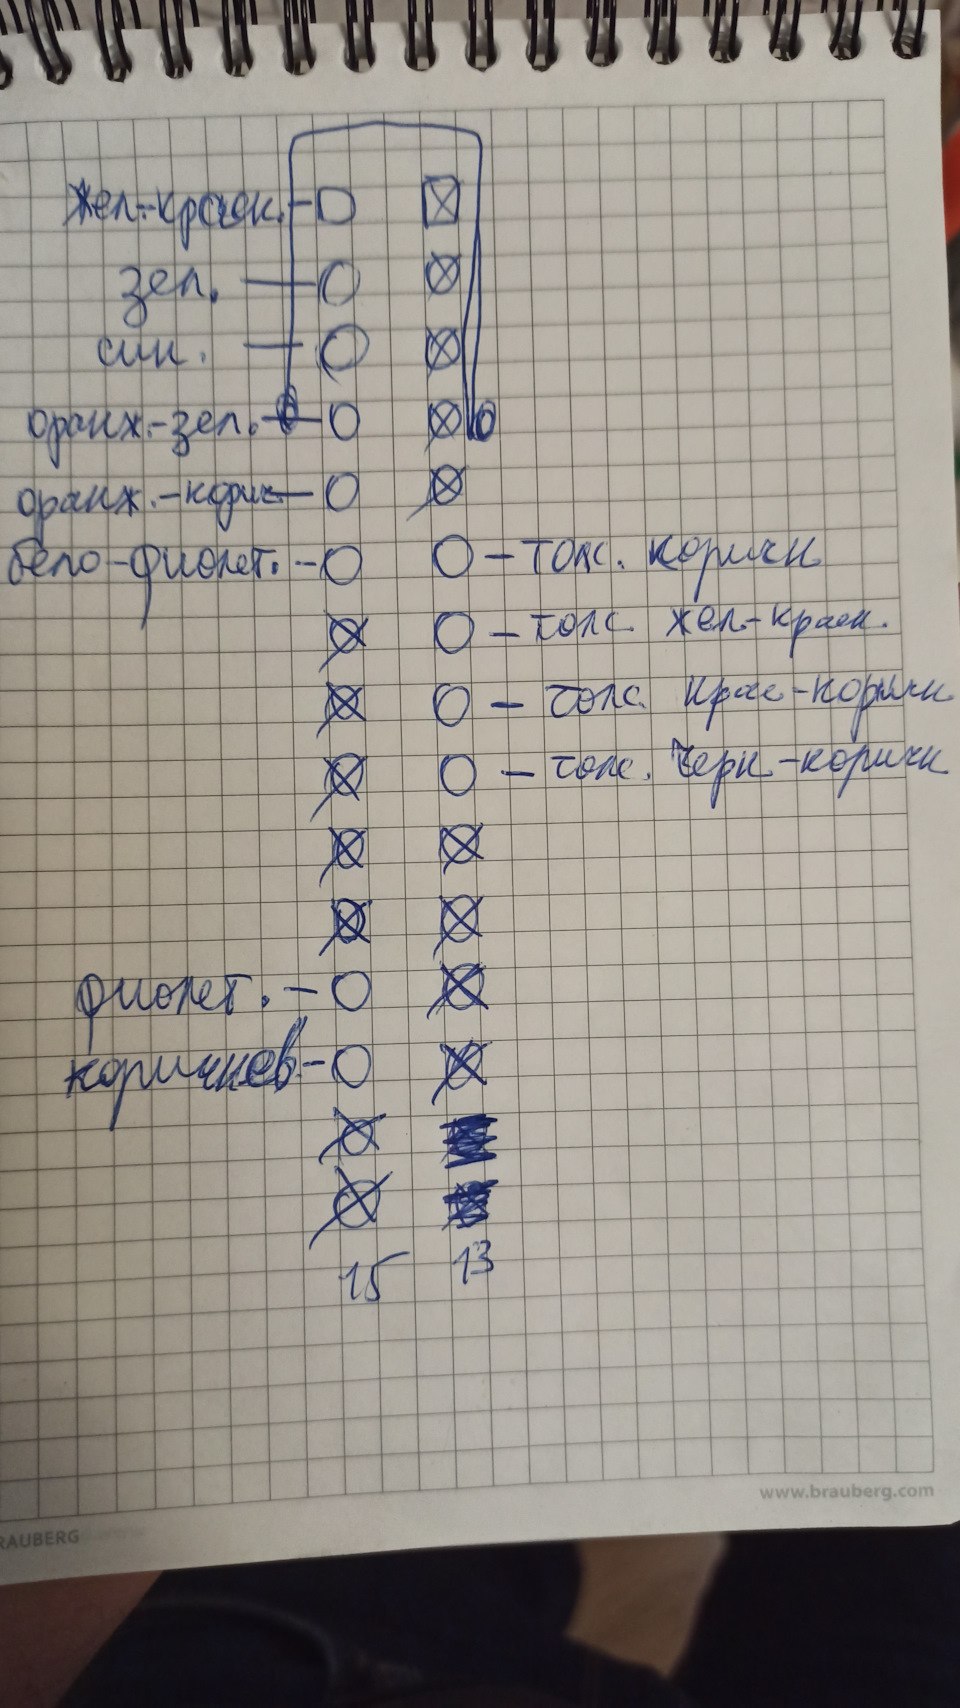 жел.-красн.
зел.
син.
оранж.-зел.
оранж.-корич
бело-фиолет. - толс. коричн
- толс. жел-красн.
- толс. крас-коричн
- толс. Черн-коричн
фиолет. -
коричнев-
15 13
www.brauberg.com
RAUBERG